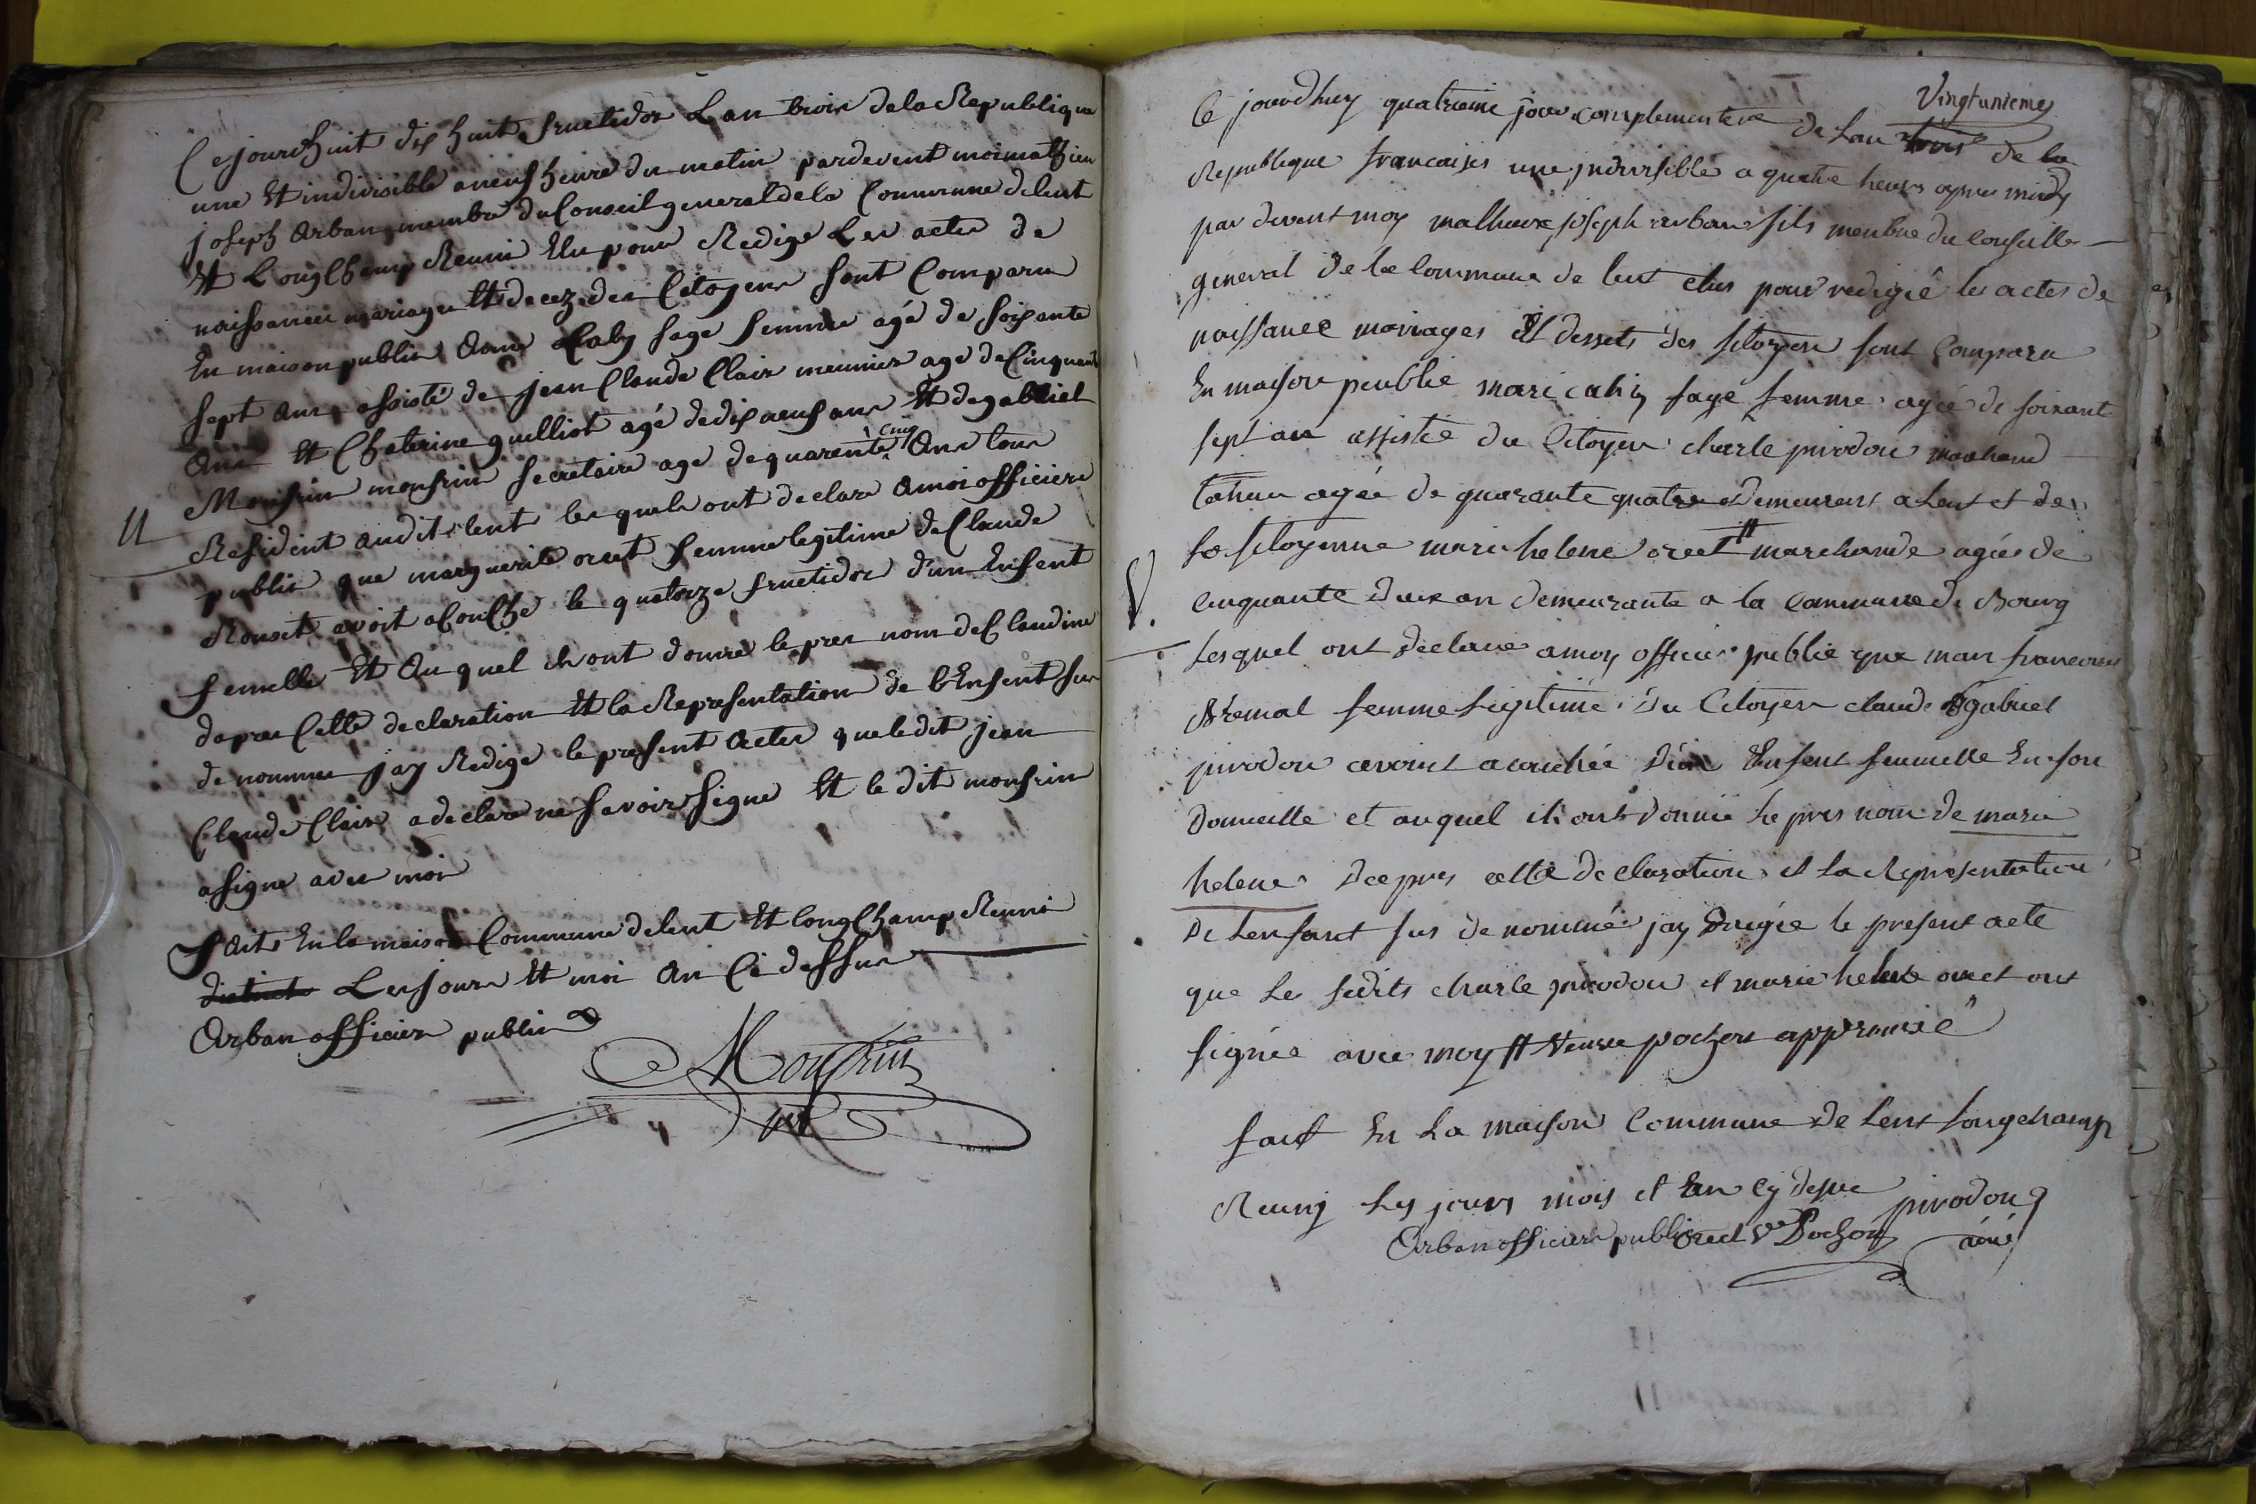 Cejourdhuit dix huit fructidor Lan trois dela Republique
une Et indivisible a neuf heure du matin pardevent moi mathieu
joseph Arban membre du Conseil general dela Commune delent
Et LongChamp Reuni Elu pour Redige Les actes de
naissances mariages Et decez des Citoyens sont Comparu
En maison public Caby sage femme agé de soixante
sept ans assisté de jean Claude Clair meunier age de Cinquente
Ans Et Chaterine guilliot agé dedix neuf ans Et de gabriel
Monfrin monfrin secretaire age de quarente Cinq Ans tous
Resident audit lent les quels ont declare amoi officiers
public que marguerite oret femme legitime de Claude
avoit acouChe le quatorze fructidor d'un Enfent
femelle Et Au quel ils ont donne le pres nom de Claudine
dapres Cette declaration Et la Representation de l'Enfent sus
de nommee jay Redige le present Actes que le dit jean
Claude Clair a declare ne savoir signe Et le dit monfrin
a signe avec moi
faits En la maison Commune delent Et longChamp Reuni
Les jours Et moi An Ci dessus
Arban officier public
Monfrin
U
Vingtunieme
Ce jourdhuy quatrieme jour complementere de Lan trois de la
Republique francaises une indivisible a quatre heures apres midy
par devent moy mathieu joseph arban fils menbre du Conseille
general de la Commune de lent elus pour redigé les actes de
naissance mariages Et dessets des sitoyen sont Comparu
En maison peublic mari caby sage femme agée de soixant
sept an assistée du Citoyen charle pirodon marchand
agée de quarante quatre demeurant a Lent et de
la sitoyenne mari helene oret # marchande agée de
cinquante deux an demeurante a la Commune de Bourg
Lesquel ont declaré a moy officier public que mari francoise
femme Legitime du Citoyen claude gabriel
pirodon avoint acouchée d'un Enfent femmelle En son
Domicille et auquel ils ont donnée le pres nom de marie
helene Daspres cette declaration et La Representation
De Lenfant sus de nommée jay Drigée le present acte
que Le sudits charle pirodon et marie helene oret ont
signée avec moy # Veuve pochon approuvée
fait En La maison Commune de Lent Longchamp
Reuny Les jours mois et an cy desus
pirodon
ainé
Arban officier public
oret Ve Pochon
V.